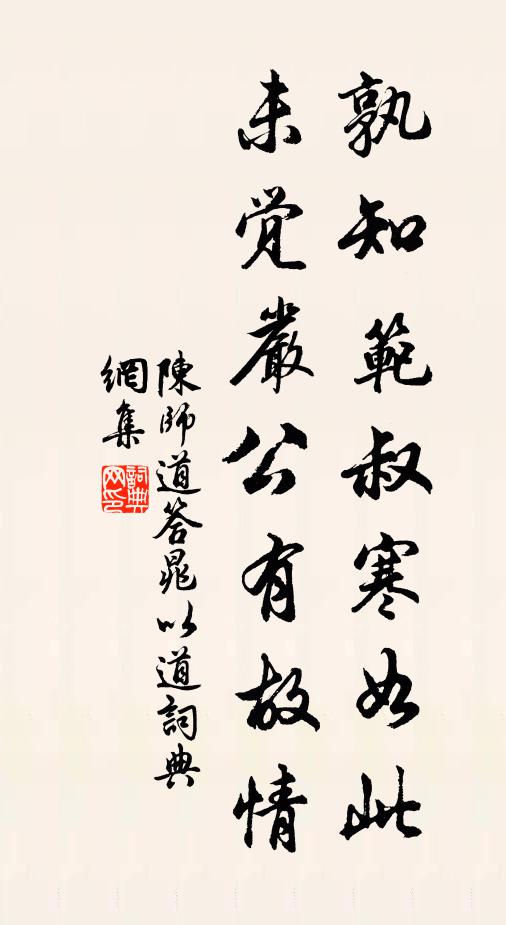 孰知範叔寒如此
未覺嚴公有故情
陳師道答晁以道詞典
網集
詞典網印